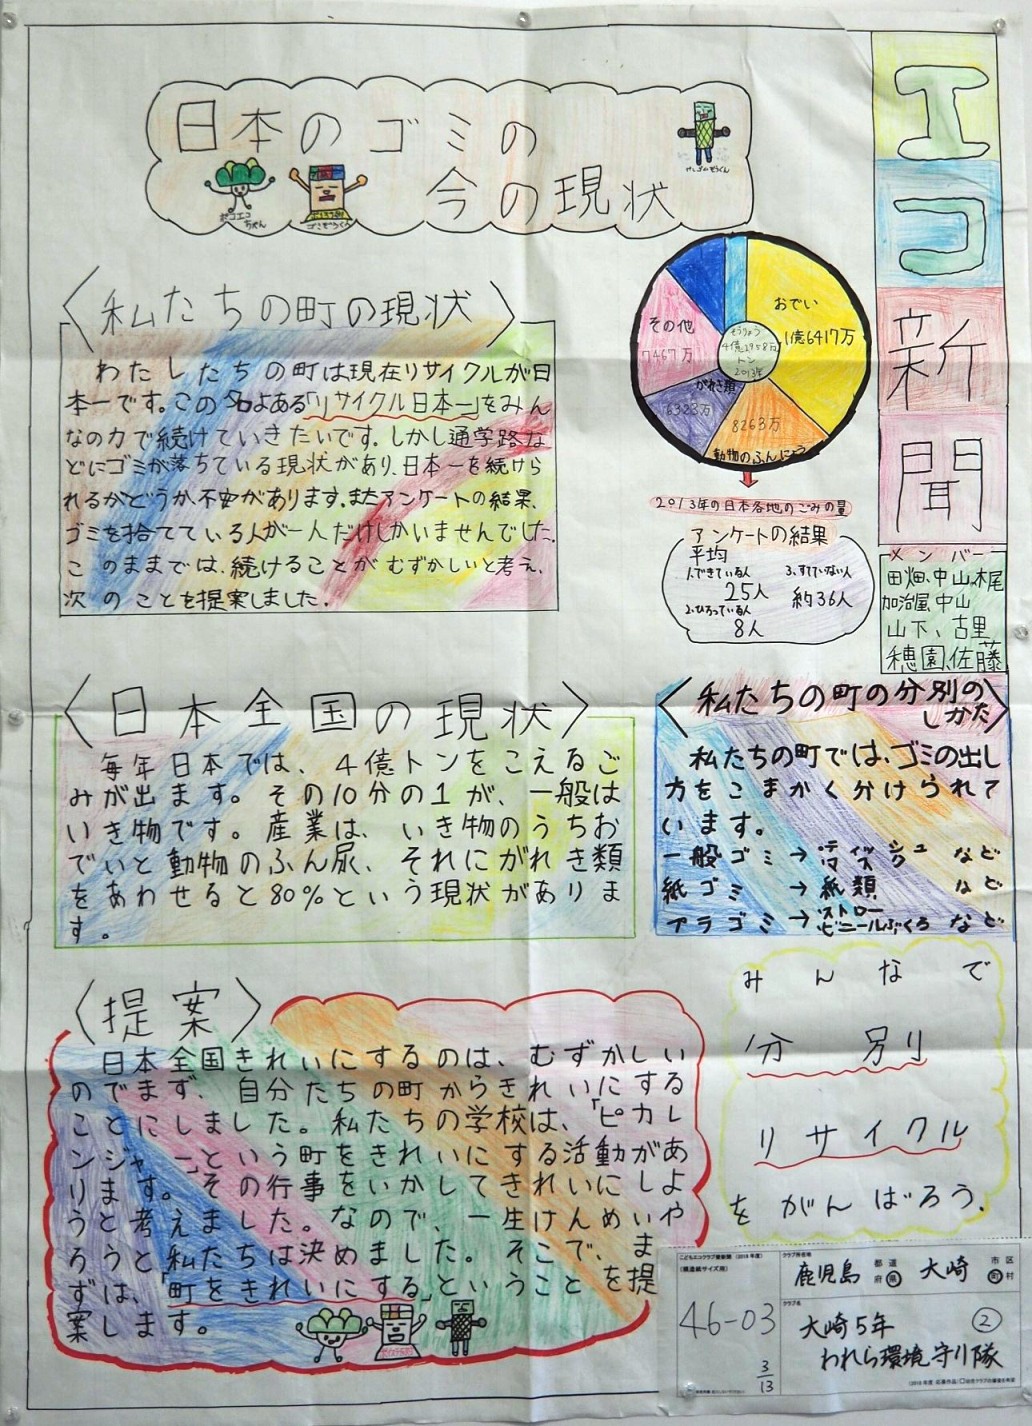 エコ新聞
日本のゴミの
今の現状
ゴミぞうくん
私たちの町の現状
わたしたちの町は現在リサイクルが日
本一です。この名よある「リサイクル日本一」をみん
なの力で続けていきたいです。しかし通学路な
どにゴミが落ちている現状があり、日本一を続けら
れるかどうか不安があります。またアンケートの結果、
ゴミを捨てている人が一人だけしかいませんでした。
このままでは、続けることがむずかしいと考え、
次のことを提案しました。
おでい
1億6417万
動物のふんにょう
8263万
がれき類
6323万
その他
7467万
そうりょう
4億2958万
トン
2013年
2013年の日本各地のごみの量
アンケートの結果
平均
1.できている人
25人
2.ひろっている人
8人
3.すていない人
約36人
メンバー
田畑、中山、木尾
加治屋、中山
山下、古里
穂園、佐藤
日本全国の現状
毎年日本では、4億トンをこえるご
みが出ます。その10分の1が、一般は
いき物です。産業は、いき物のうちお
でいと動物のふん尿、それにがれき類
をあわせると80%という現状がありま
す。
私たちの町の分別の
しかた
私たちの町では、ゴミの出し
方をこまかく分けられて
います。
一般ゴミ→ティッシュ マスク など
紙ゴミ→紙類 など
プラゴミ→ストロー ビニールぶくろ など
提案
日本全国きれいにするのは、むずかしい
のでまず、自分たちの町からきれいにする
ことにしました。私たちの学校は、「ピカレ
ンジャー」という町をきれいにする活動があ
ります。その行事をいかしてきれいにしよ
うと考えました。なので、一生けんめいや
ろうと私たちは決めました。そこで、ま
ずは、「町をきれいにする」ということを提
案します。
みんなで
分別
リサイクル
をがんばろう。
こどもエコクラブ壁新聞 (2018年度)
(模造紙サイズ用)
46-03
3/13
クラブ所在地
鹿児島 都道府県 大崎 市区町村
クラブ名
大崎5年 ②
われら環境守り隊